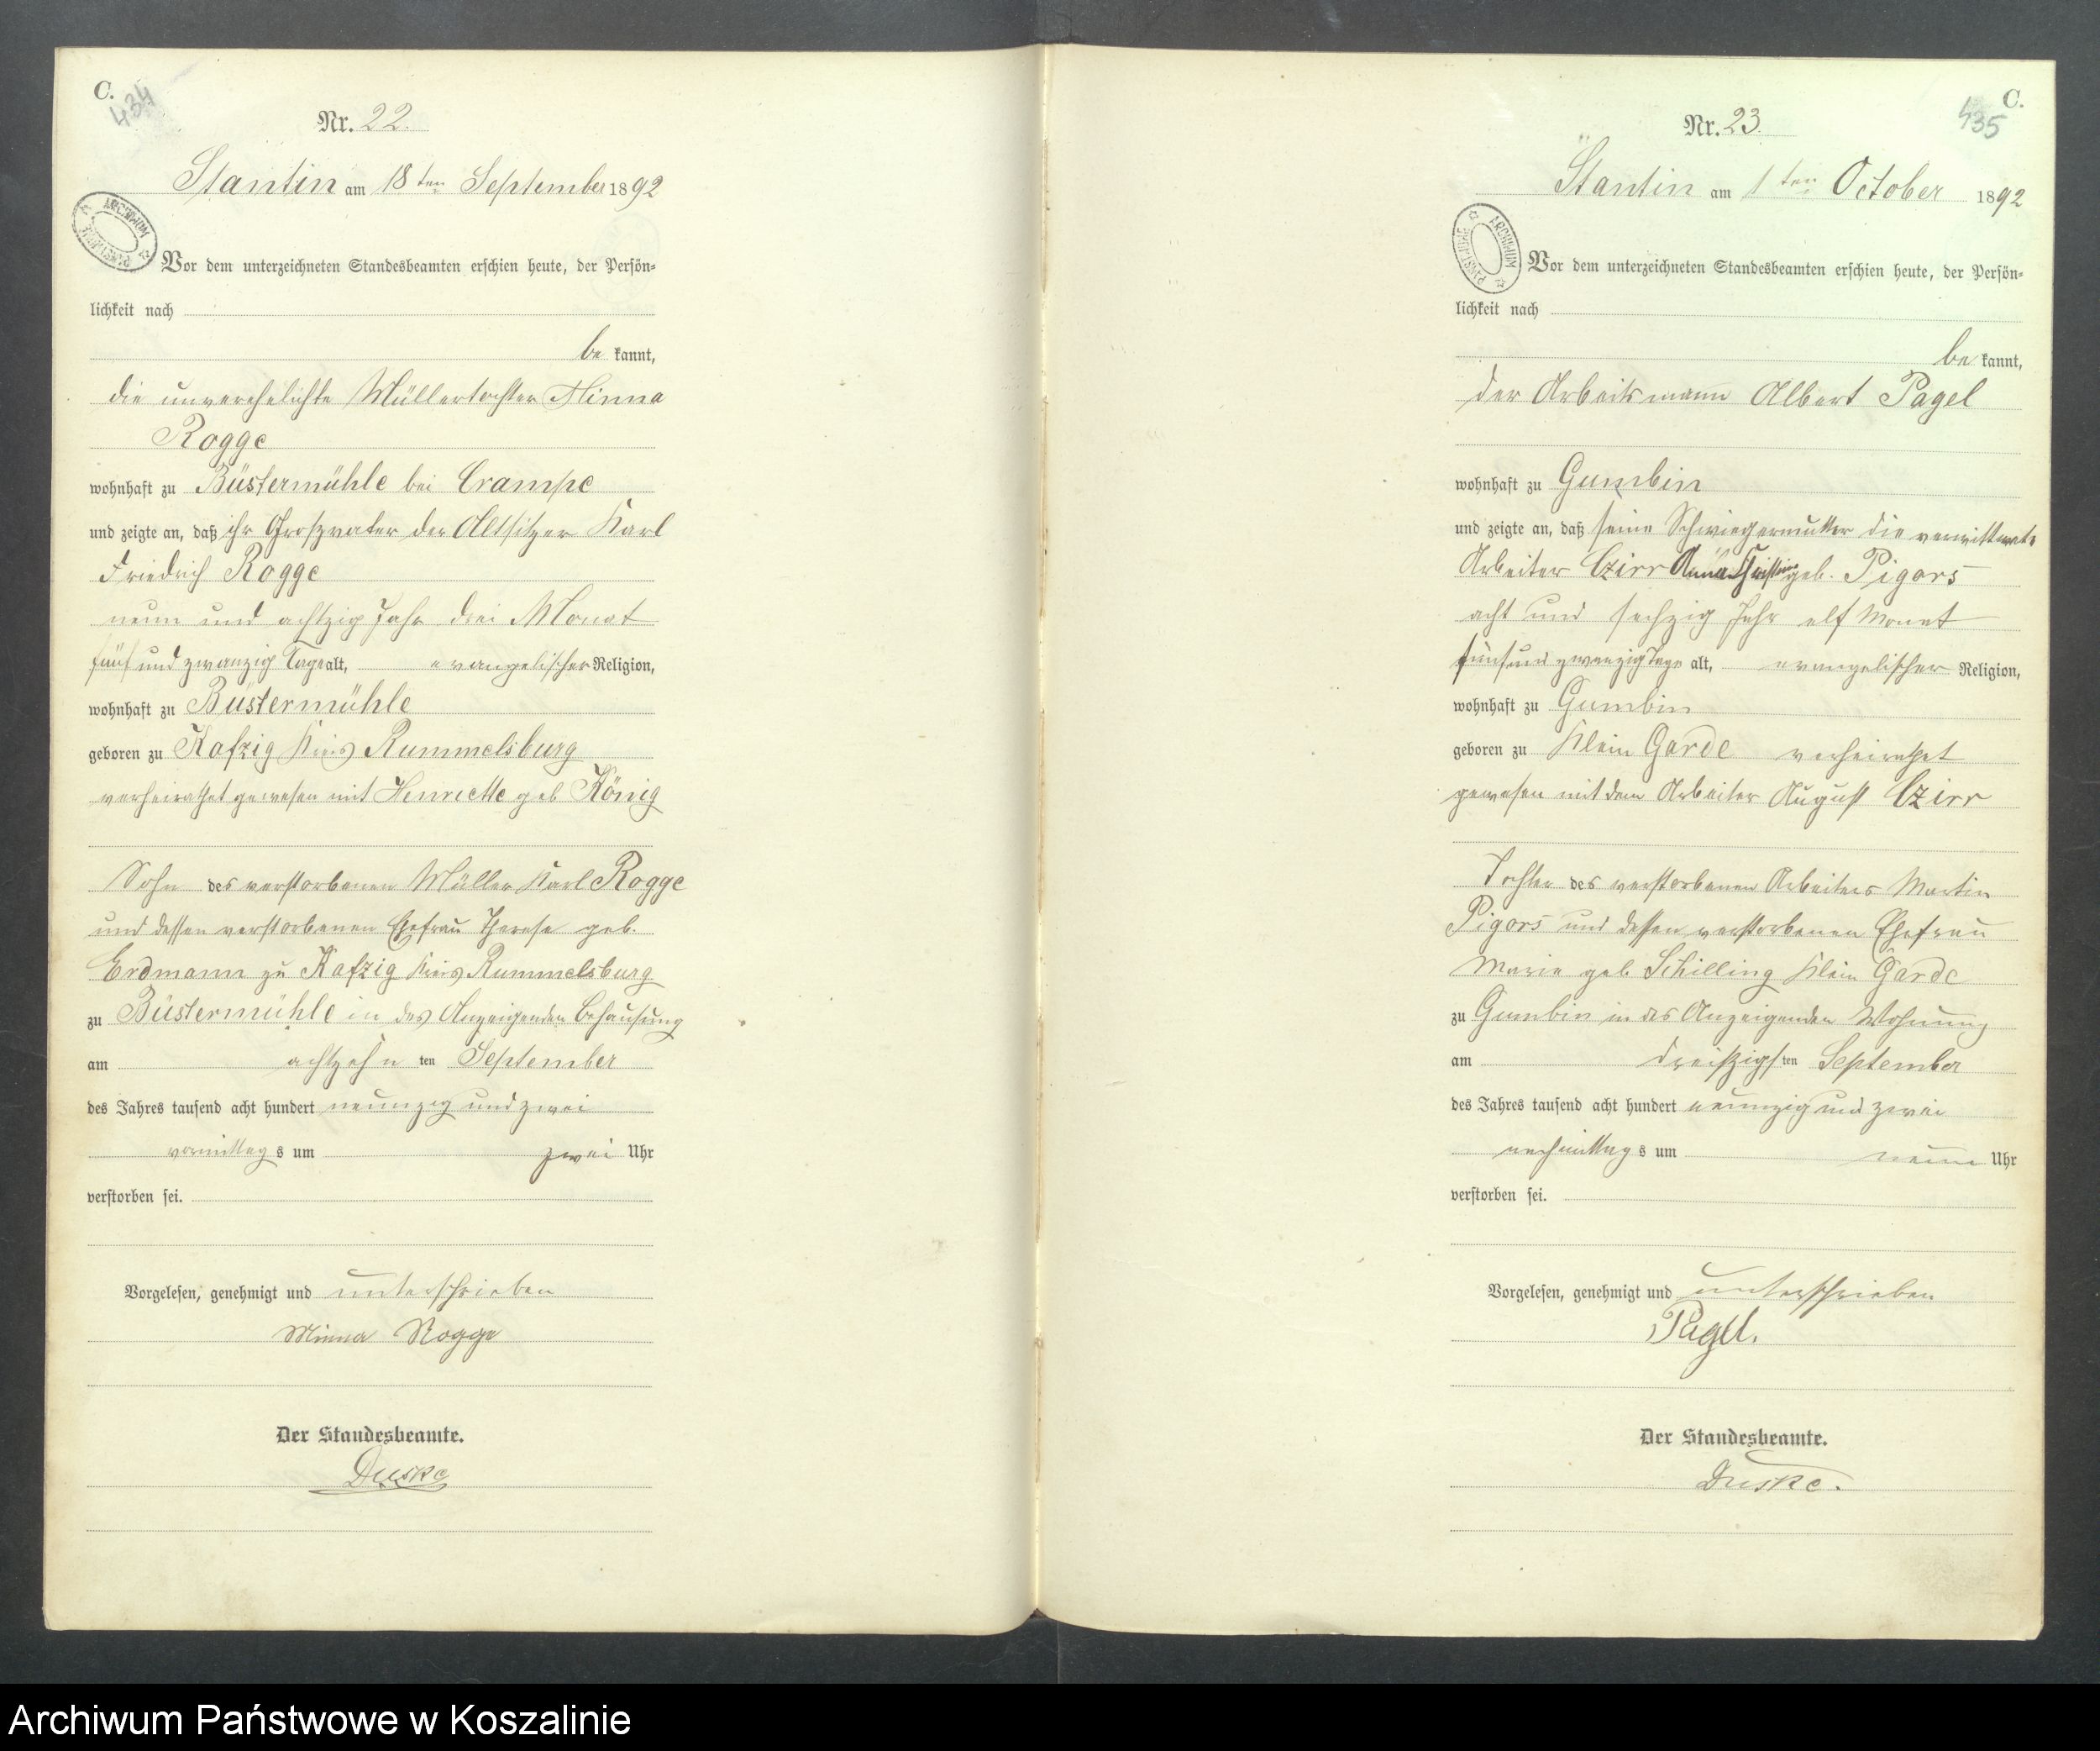 C.
434
Nr. 22.
Stantin am 18 ten September 1892
ARCHIWUM PAŃSTWOWE
Vor dem unterzeichneten Standesbeamten erschien heute, der Persön=
lichkeit nach
be kannt,
die unverehelichte Müllertochter Minna
Rogge
wohnhaft zu Büstermühle bei Crampe
und zeigte an, daß ihr Großvater der Altsitzer Karl
Friedrich Rogge
neun und achtzig Jahr drei Monat
fünf und zwanzig Tage alt, evangelischer Religion,
wohnhaft zu Büstermühle
geboren zu Kafzig Kreis Rummelsburg
verheirathet gewesen mit Henriette geb König
Sohn des verstorbenen Müller Karl Rogge
und dessen verstorbenen Ehefrau Therese geb.
Erdmann zu Kafzig Kreis Rummelsburg
zu Büstermühle in des Anzeigenden Behausung
am achtzehn ten September
des Jahres tausend acht hundert neunzig und zwei
vormittag s um zwei Uhr
verstorben sei.
Vorgelesen, genehmigt und unterschrieben
Minna Rogge
Der Standesbeamte.
Duske
C.
435
Nr. 23.
Stantin am 1 ten October 1892
ARCHIWUM PAŃSTWOWE
Vor dem unterzeichneten Standesbeamten erschien heute, der Persön=
lichkeit nach
be kannt,
der Arbeitsmann Albert Pagel
wohnhaft zu Gumbin
und zeigte an, daß seine Schwiegermutter die verwittwete
Arbeiter Czirr Anna Christine geb. Pigors
acht und sechzig Jahr elf Monat
fünf und zwanzig Tage alt, evangelischer Religion,
wohnhaft zu Gumbin
geboren zu Klein Garde verheirathet
gewesen mit dem Arbeiter August Czirr
Tochter des verstorbenen Arbeiters Martin
Pigors und dessen verstorbenen Ehefrau
Marie geb. Schilling Klein Garde
zu Gumbin in des Anzeigenden Wohnung
am dreißigs ten September
des Jahres tausend acht hundert neunzig und zwei
nachmittag s um neun Uhr
verstorben sei.
Vorgelesen, genehmigt und unterschrieben
Pagel.
Der Standesbeamte.
Duske.
Archiwum Państwowe w Koszalinie